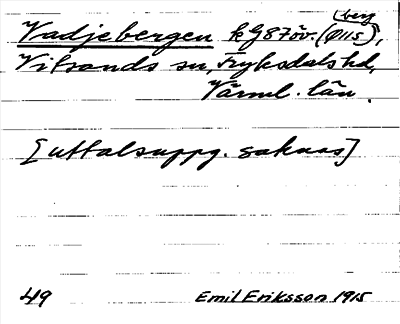 Vadjebergen k G87öv. (berg Ø115),
Vitsands sn, Fryksdals hd,
Värml. län.
[uttalsuppg. saknas]
49 Emil Eriksson 1915